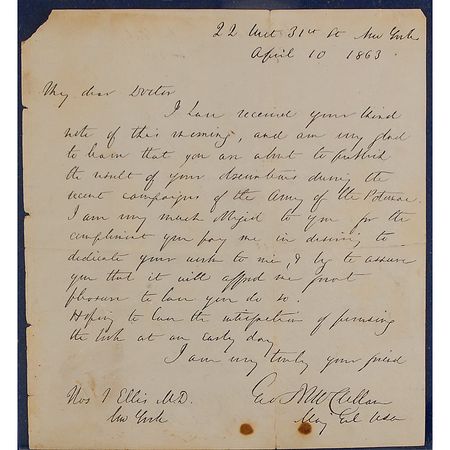 22 West 31st St New York
April 10 1863
My dear Doctor
I have received your kind
note of this morning, and am very glad
to learn that you are about to publish
the result of your observations during the
recent campaigns of the Army of the Potomac.
I am very much obliged to you for the
compliment you pay me in desiring to
dedicate your work to me, & beg to assure
you that it will afford me great
pleasure to have you do so.
Hoping to have the satisfaction of perusing
the book at an early day
I am very truly your friend
Geo B McClellan
Maj Genl USA
Thos T Ellis M.D.
New York